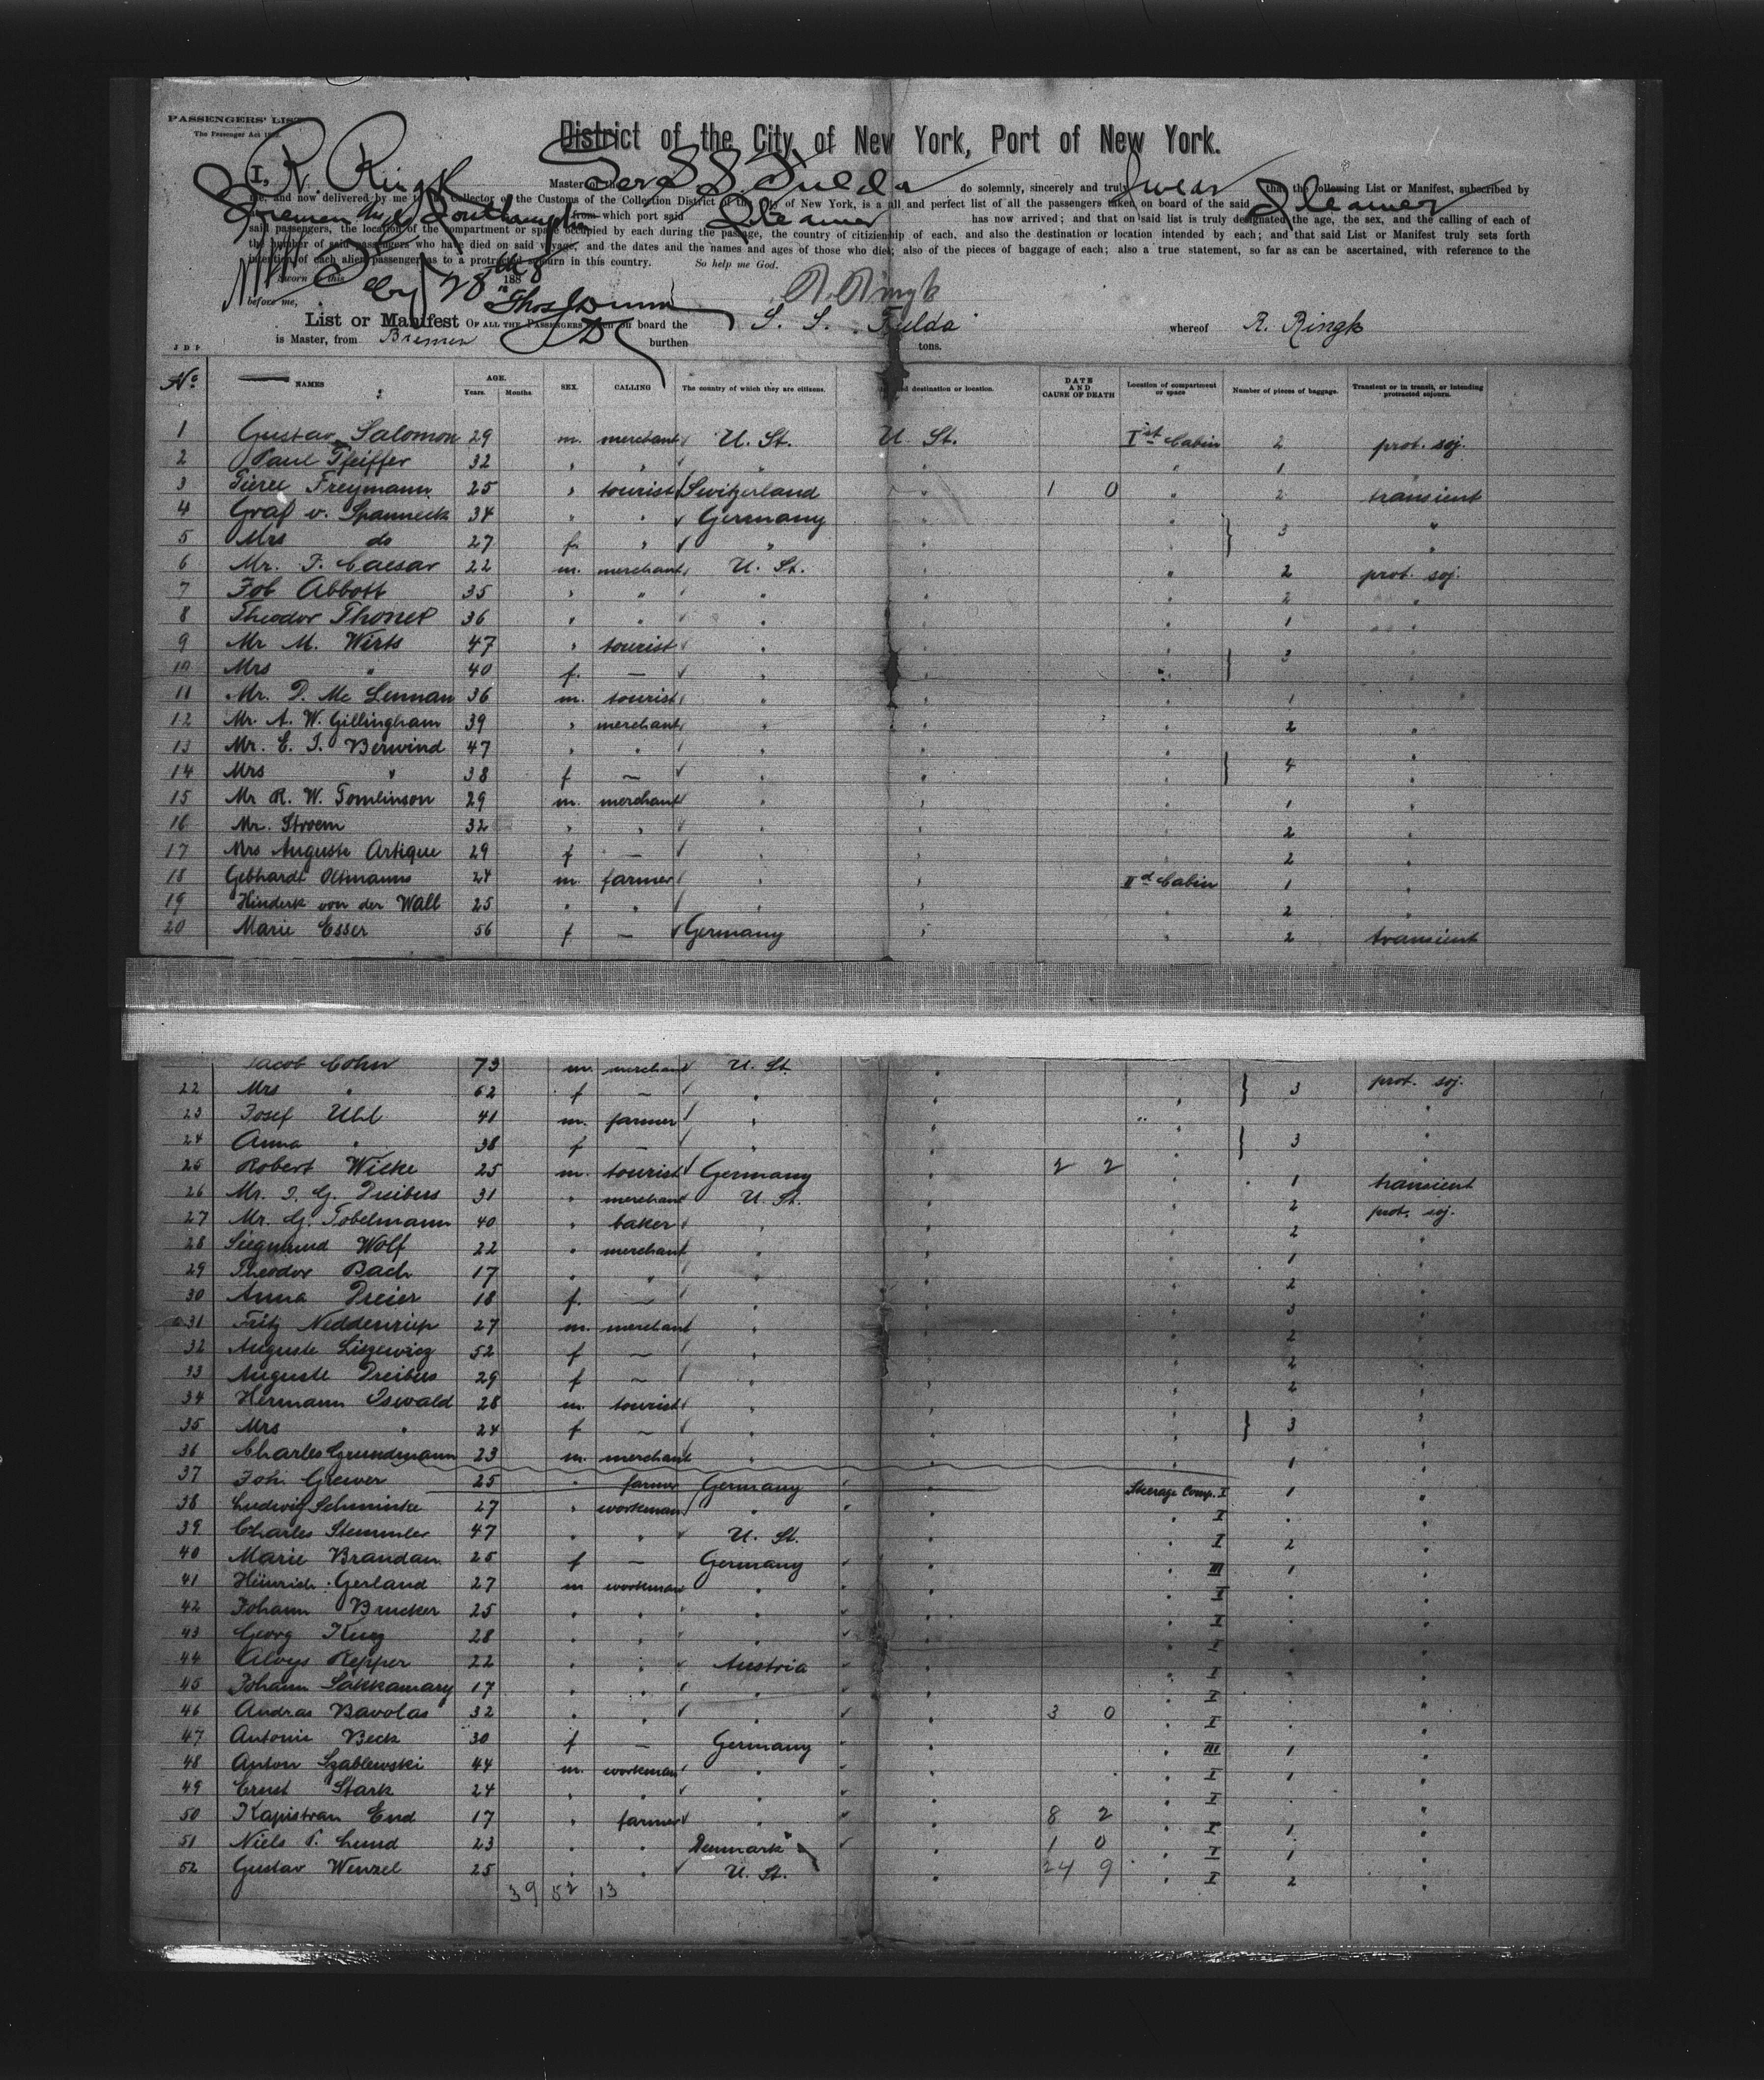 PASSENGERS' LIST
The Passenger Act 1882.
District of the City of New York, Port of New York.
I, R. Ringk Master of the Gera S. S. Fulda do solemnly, sincerely and truly swear that the following List or Manifest, subscribed by
me, and now delivered by me to the Collector of the Customs of the Collection District of the City of New York, is a full and perfect list of all the passengers taken on board of the said Steamer
Bremen and Southampton from which port said Steamer has now arrived; and that on said list is truly designated the age, the sex, and the calling of each of
said passengers, the location of the compartment or space occupied by each during the passage, the country of citizenship of each, and also the destination or location intended by each; and that said List or Manifest truly sets forth
the number of said passengers who have died on said voyage, and the dates and the names and ages of those who died; also of the pieces of baggage of each; also a true statement, so far as can be ascertained, with reference to the
intention of each alien passenger as to a protracted sojourn in this country. So help me God.
Sworn to this Feby 28th 1888
before me, R. Ringk
List or Manifest OF ALL THE PASSENGERS taken on board the S. S. Fulda whereof R. Ringk
is Master, from Bremen burthen tons.
No. NAMES AGE. Years. Months SEX. CALLING The country of which they are citizens. Intended destination or location. DATE AND CAUSE OF DEATH Location of compartment or space Number of pieces of baggage. Transient or in transit, or intending protracted sojourn.
1 Gustav Salomon 29 m. merchant U. St. U. St. Ist Cabin 2 prot. soj.
2 Paul Pfeiffer 32 " " " " " 1 "
3 Pierre Freymann 25 " tourist Switzerland " 1 0 " 2 transient
4 Graf v. Spanneck 34 " " Germany " " } 3 "
5 Mrs do 27 f. " " " " "
6 Mr. F. Caesar 22 m. merchant U. St. " " 2 prot. soj.
7 Job Abbott 35 " " " " " 2 "
8 Theodor Thonet 36 " " " " " 1 "
9 Mr M. Wirts 47 " tourist " " " } 3 "
10 Mrs " 40 f. — " " " "
11 Mr. D. Mc Lennan 36 m. tourist " " " 1 "
12 Mr. A. W. Gillingham 39 " merchant " " " 2 "
13 Mr. E. J. Berwind 47 " " " " " } 4 "
14 Mrs " 38 f — " " " "
15 Mr R. W. Tomlinson 29 m. merchant " " " 1 "
16 Mr. Stroem 32 " " " " " 2 "
17 Mrs Auguste Artique 29 f — " " " 2 "
18 Gebhardt Oltmanns 24 m. farmer " " IId Cabin 1 "
19 Hinderk von der Wall 25 " " " " " 2 "
20 Marie Esser 56 f — Germany " " 2 transient
Jacob Cohn 73 m. merchant U. St. " " } 3 prot. soj.
22 Mrs " 62 f — " " " "
23 Josef Uhl 41 m. farmer " " " } 3 "
24 Anna " 38 f — " " " "
25 Robert Wilke 25 m. tourist Germany " 2 2 " 1 transient
26 Mr. J. G. Preibus 31 " merchant U. St. " " 2 prot. soj.
27 Mr. G. Tobelmann 40 " baker " " " 2 "
28 Siegmund Wolf 22 " merchant " " " 1 "
29 Theodor Bach 17 " " " " " 2 "
30 Anna Dreier 18 f. — " " " 3 "
31 Fritz Nedderriep 27 m. merchant " " " 2 "
32 Auguste Liszewicz 52 f — " " " 2 "
33 Auguste Preibus 29 f — " " " 2 "
34 Hermann Oswald 28 m. tourist " " " } 3 "
35 Mrs " 24 f — " " " "
36 Charles Grundmann 23 m. merchant " " " 1 "
37 Joh. Grewer 25 " farmer Germany " Steerage Comp. I 1 "
38 Ludwig Schminke 27 " workman " " " I " "
39 Charles Stemmler 47 " " U. St. " " I 2 "
40 Marie Brandau 25 f — Germany " " III 1 "
41 Heinrich Gerland 27 m workman " " " I " "
42 Johann Brucker 25 " " " " " I " "
43 Georg Kurz 28 " " " " " I " "
44 Aloys Repper 22 " " Austria " " I " "
45 Johann Sakkamary 17 " " " " " I " "
46 Andras Bavolas 32 " " " " 3 0 " I " "
47 Antonie Beck 30 f — Germany " " III 1 "
48 Anton Szablewski 44 m. workman " " " I 1 "
49 Ernst Stark 24 " " " " " I " "
50 Kapistran End 17 " farmer " " 8 2 " I 1 "
51 Niels P. Lund 23 " " Denmark " 1 0 " I 1 "
52 Gustav Wenzel 25 " " U. St. " 24 9 " I 2 "
39 52 13